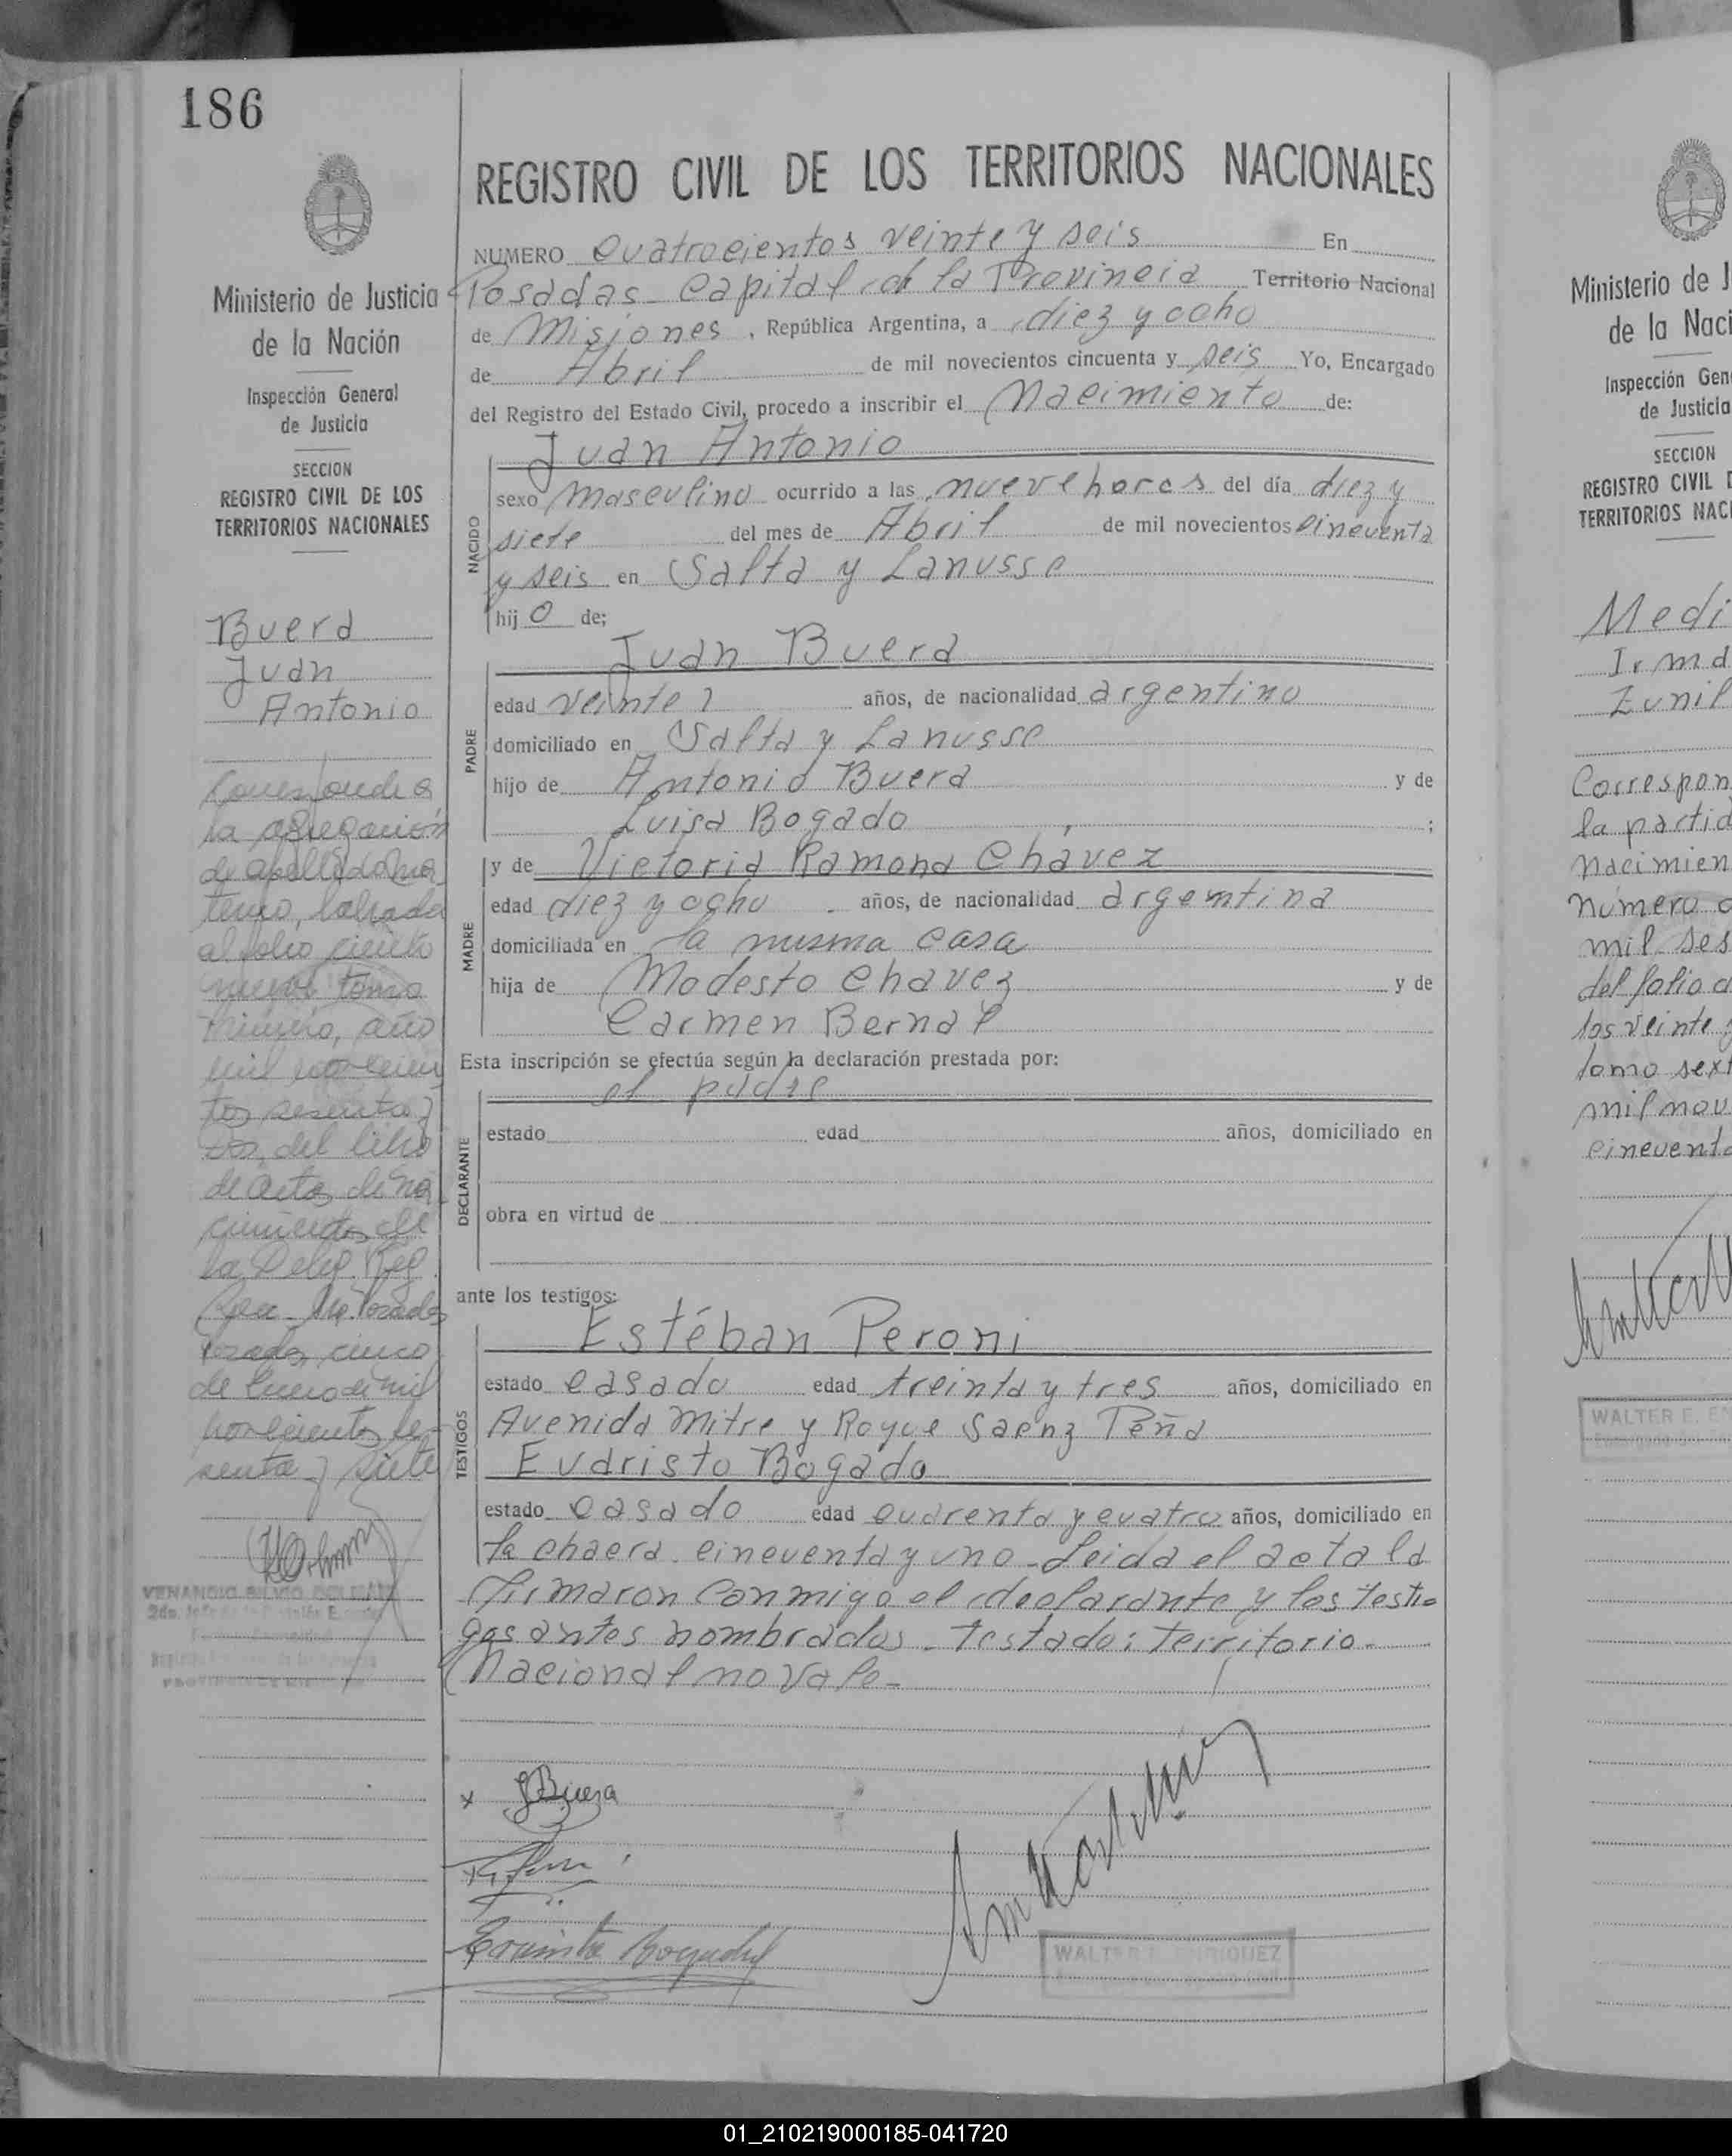 186
REGISTRO CIVIL DE LOS TERRITORIOS NACIONALES
NUMERO Cuatrocientos veinte y seis En
Posadas Capital de la Provincia Territorio Nacional
de Misiones, República Argentina, a diez y ocho
de Abril de mil novecientos cincuenta y seis Yo, Encargado
del Registro del Estado Civil, procedo a inscribir el Nacimiento de:
Juan Antonio
NACIDO
sexo masculino ocurrido a las nueve horas del día diez y
siete del mes de Abril de mil novecientos cincuenta
y seis en Salta y Lanusse
hijo de;
Juan Buera
PADRE
edad veinte años, de nacionalidad argentino
domiciliado en Salta y Lanusse
hijo de Antonio Buera y de
Luisa Bogado ;
MADRE
y de Victoria Ramona Chavez
edad diez y ocho años, de nacionalidad argentina
domiciliada en la misma casa
hija de Modesto Chavez y de
Carmen Bernal
Esta inscripción se efectúa según la declaración prestada por:
el padre
DECLARANTE
estado edad años, domiciliado en
obra en virtud de
ante los testigos:
TESTIGOS
Estéban Peroni
estado casado edad treinta y tres años, domiciliado en
Avenida Mitre y Roque Saenz Peña
Evaristo Bogado
estado casado edad cuarenta y cuatro años, domiciliado en
la chacra cincuenta y uno - Leida el acta la
firmaron conmigo el declarante y los testi-
gos antes nombrados - testado: territorio
Nacional no vale -
JBuera
Evaristo Bogado
WALTER E. ENRIQUEZ
Ministerio de Justicia
de la Nación
Inspección General
de Justicia
SECCION
REGISTRO CIVIL DE LOS
TERRITORIOS NACIONALES
Buera
Juan
Antonio
Corresponde a
la agregación
de apellido ma
terno, labrada
al folio ciento
nueve tomo
primero, año
mil novecien
tos sesenta y
dos, del libro
de actas de na
cimientos de
la Deleg. Reg.
Posadas
Posadas, cinco
de Enero de mil
novecientos se-
senta y siete
VENANCIO SILVIO
Ministerio de J
de la Naci
Inspección Gen
de Justicia
SECCION
REGISTRO CIVIL D
TERRITORIOS NACI
Medi
Irma
Zunil
Correspon
la partid
nacimien
número
mil ses
del folio
los veinte
tomo sext
mil nov
cincuenta
WALTER E. EN
01_210219000185-041720